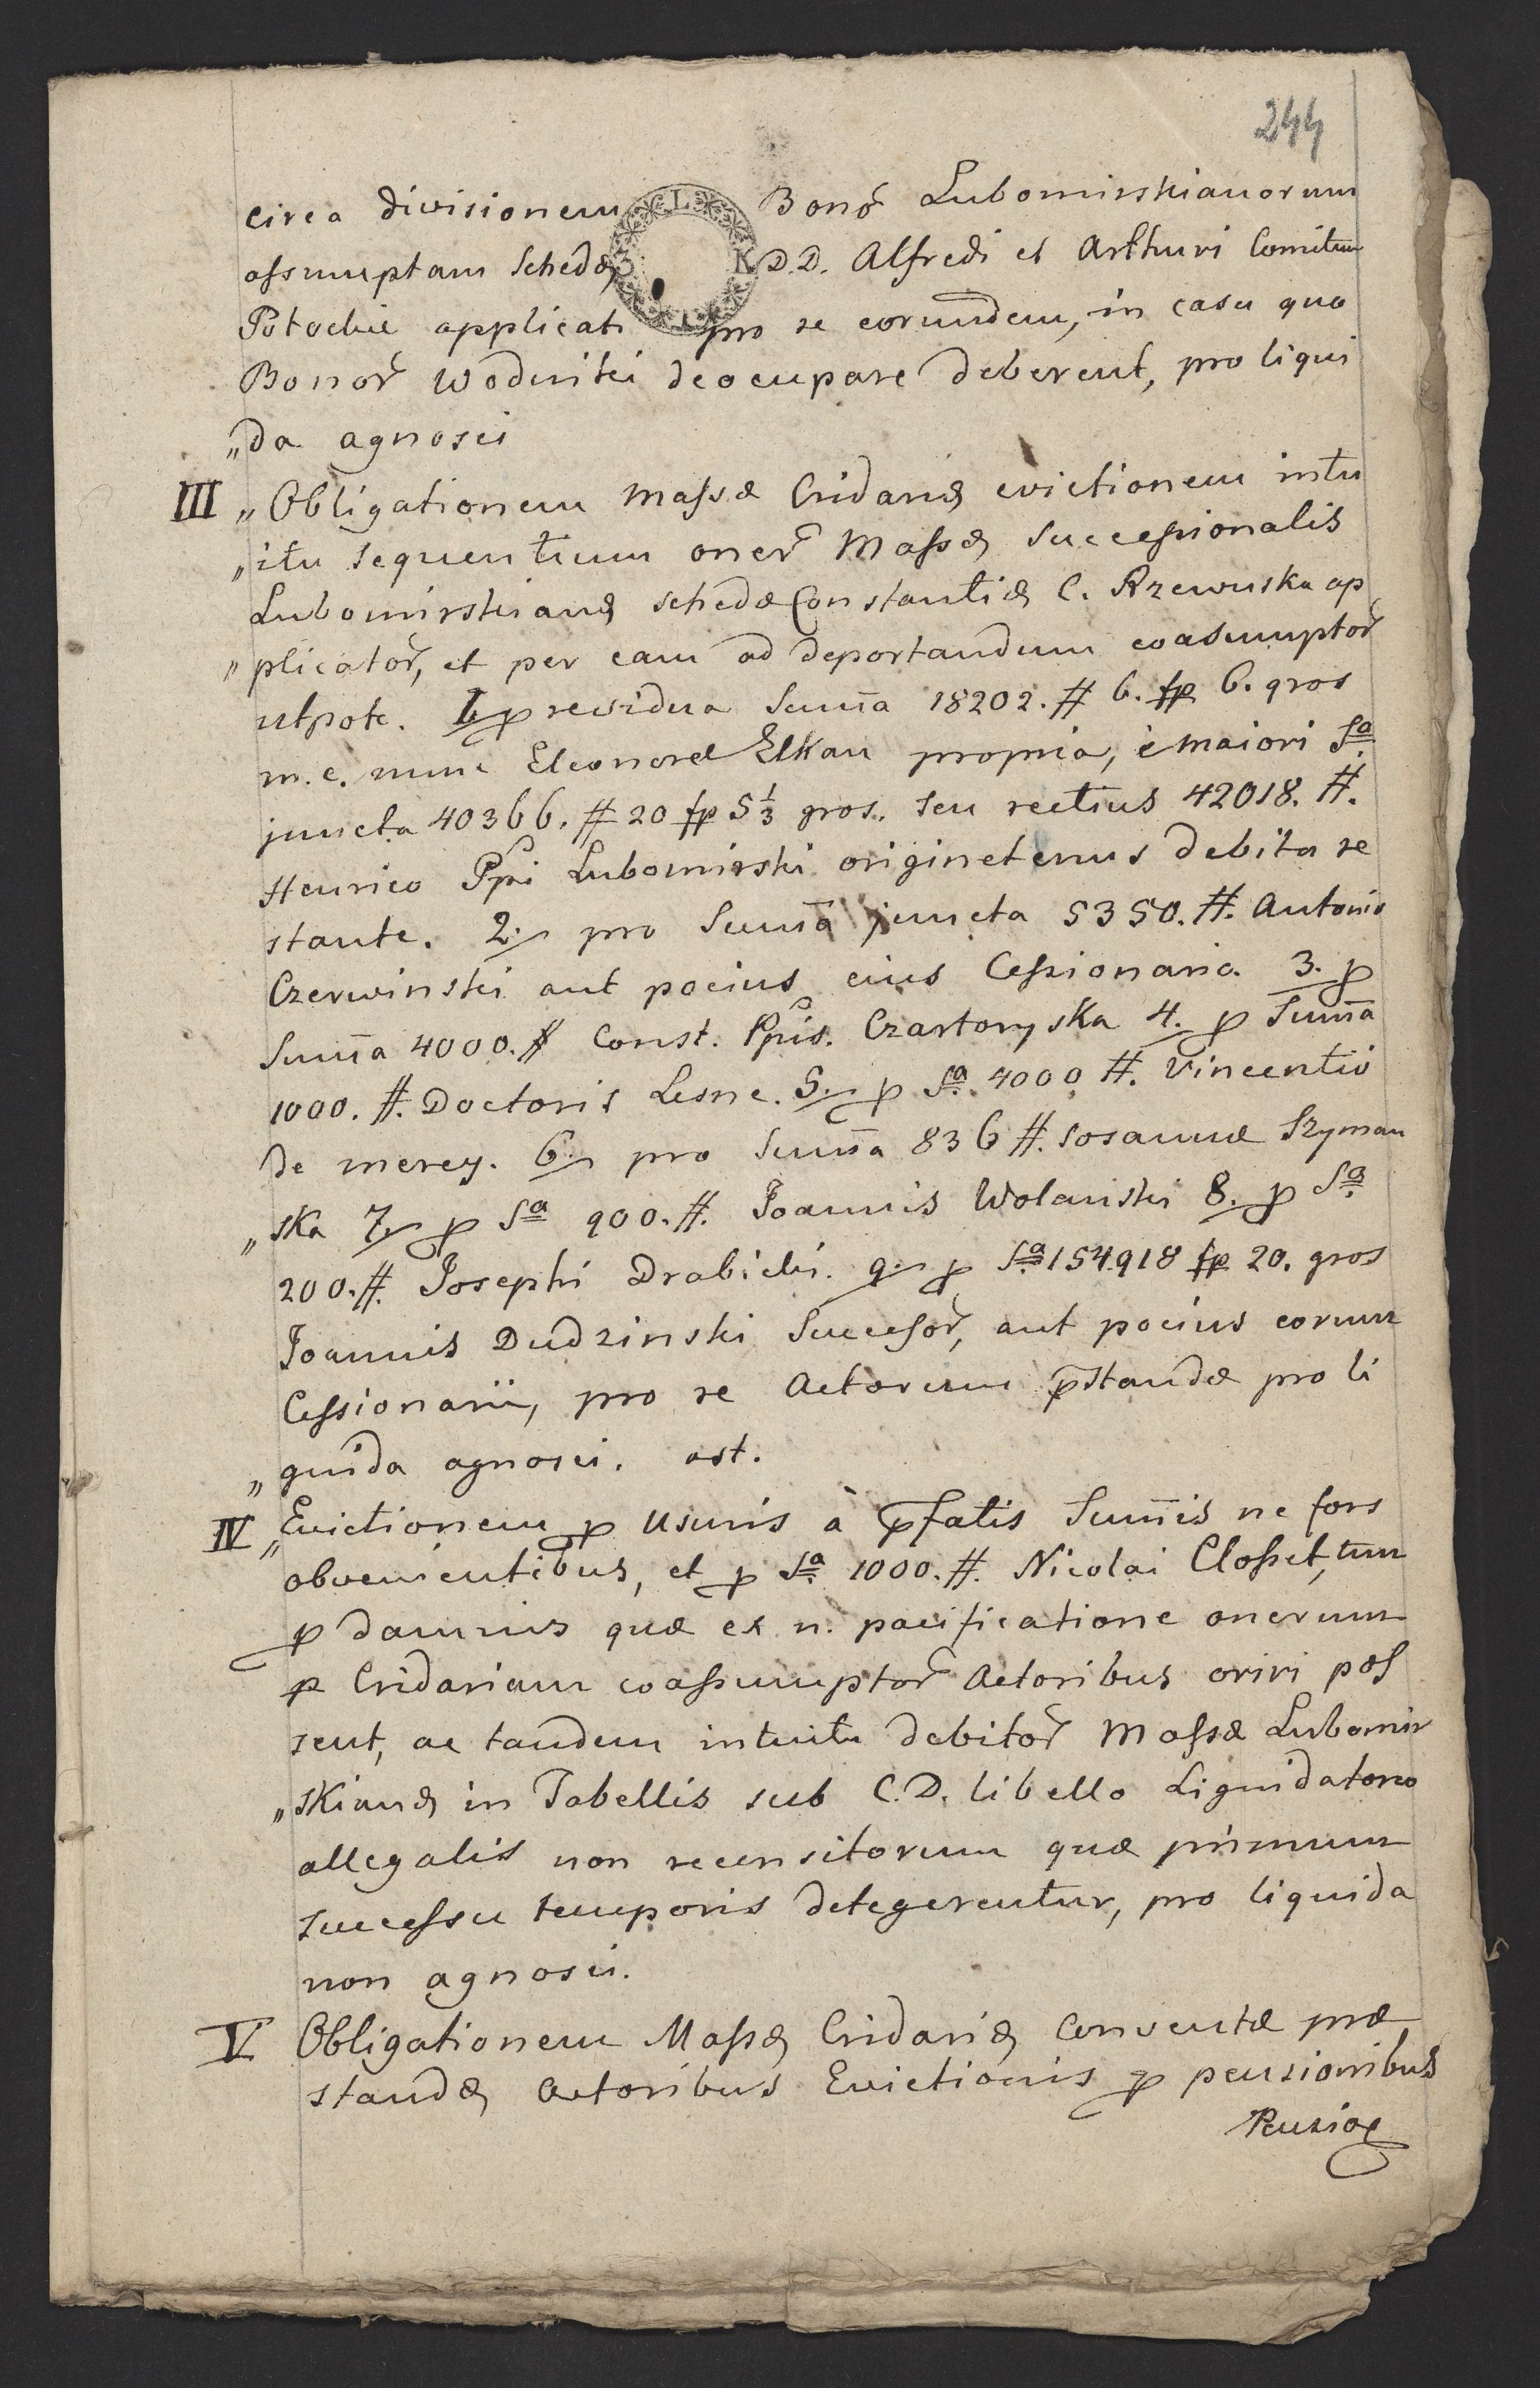 244
circa divisionem Bonor̃ Lubomirskianorum
assumptam Schedæ D.D. Alfredi et Arthuri Comitum
Potockie applicati pro re eorundem, in casu quo
Bonor̃ Wodniki deocupare deberent, pro liqui
„da agnosci
III „Obligationem Massæ Cridariæ evictionem intu
„itu sequentium oner̃ Massæ Successionalis
Lubomirskianæ schedæ Constantiæ C. Rzewuska ap
„plicator̃, et per eam ad deportandum coasumptor̃
utpote. 1. p residua Sum̃a 18202. # 6. fp 6. gros
m. c. nunc Eleonoræ Elkan propria, è maiori Sa
juncta 40366. # 20 fp 5 1/3 gros. seu rectius 42018. #.
Henrico Ppi Lubomirski originetenus debita re
stante. 2. pro Sum̃a juncta 5350. #. Antonio
Czerwinski aut pocius eius Cessionaria. 3. p
Sum̃a 4000. # Const. Ppis. Czartoryska 4. p Sum̃a
1000. #. Doctoris Lesne. 5. p Sa. 4000 #. Vincentio
de merey. 6. pro Sum̃a 836 #. Sosannæ Szyman
„ska 7. p Sa 900. #. Joannis Wolanski 8. p Sa
200. #. Josephi Drabicki. 9. p Sa 154918 fp 20. gros
Joannis Dudzinski Successor̃, aut pocius eorum
Cessionarii, pro re Actorum p̃standæ pro li
„quida agnosci. ast.
IV „Evictionem p Usuris à p̃fatis Sum̃is ne fors
obvenientibus, et p Sa. 1000. #. Nicolai Closset, tum
p damnis quæ ex n. pacificatione onerum
p Cridariam coassumptor̃ Actoribus oriri pos
sent, ac tandem intuitu debitor̃ Massæ Lubomir
„skianæ in Tabellis sub C.D. libello Liquidatorio
allegatis non recensitorum quæ primum
successu temporis detegerentur, pro liquida
non agnosci.
V Obligationem Massæ Cridariæ conventæ præ
standæ Actoribus Evictionis p pensionibus